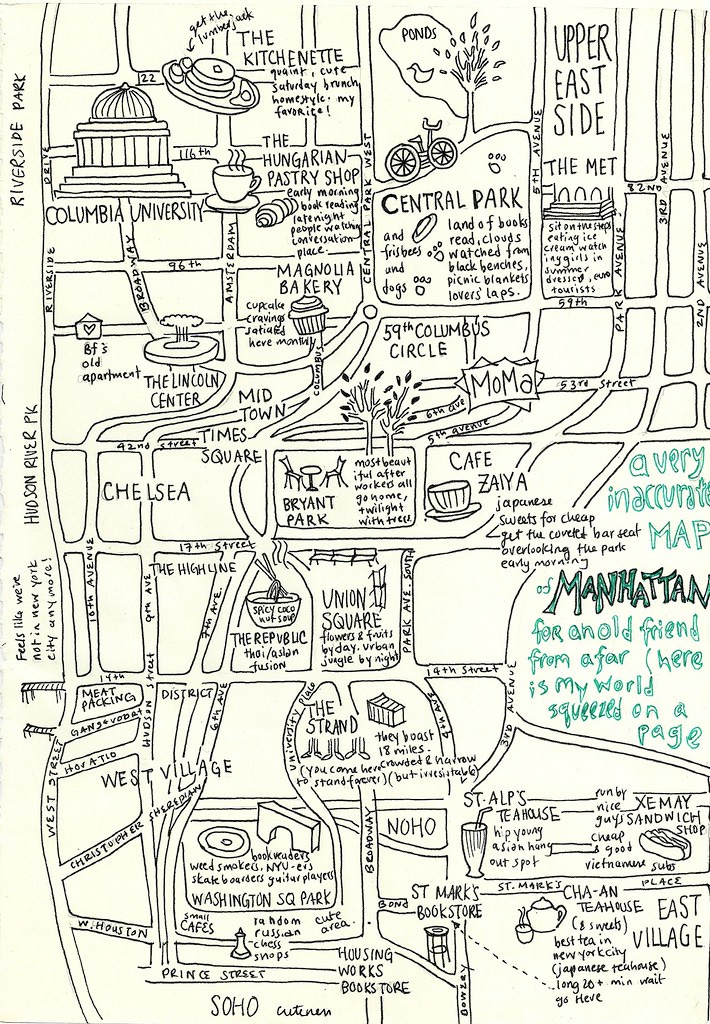 get the
lumberjack
THE
KITCHENETTE
quaint, cute
saturday brunch
homestyle. my
favorite!
PONDS
UPPER
EAST
SIDE
RIVERSIDE PARK
122
116th
THE
HUNGARIAN
PASTRY SHOP
early morning
book reading
late night
people watching
conversation
place.
COLUMBIA UNIVERSITY
DRIVE
RIVERSIDE
BROADWAY
AMSTERDAM
CENTRAL PARK WEST
5TH AVENUE
THE MET
82ND
3RD AVENUE
2ND AVENUE
PARK AVENUE
sit on the steps
eating ice
cream watch
ing girls in
summer
dresses, euro
tourists
CENTRAL PARK
and
frisbees
and
dogs
land of books
read, clouds
watched from
black benches,
picnic blankets
lovers' laps.
96th
MAGNOLIA
BAKERY
cupcake
cravings
satiated
here monthly
COLUMBUS
59th
59th COLUMBUS
CIRCLE
Bf's
old
apartment
THE LINCOLN
CENTER
MID
TOWN
MOMA
53rd Street
6th ave
5th avenue
42nd street
TIMES
SQUARE
HUDSON RIVER PK
CHELSEA
BRYANT
PARK
most beaut
iful after
workers all
go home,
twilight
with trees
CAFE
ZAIYA
japanese
sweets for cheap
get the coveted bar seat
overlooking the park
early morning
a very
inaccurate
MAP
of MANHATTAN
for an old friend
from afar (here
is my world
squeezed on a
page
17th Street
THE HIGHLINE
10th AVENUE
9th AVE
7th AVE.
Feels like we're
not in new york
city anymore!
SPICY COCO
NUT SOUP
THE REPUBLIC
thai/asian
fusion
UNION
SQUARE
flowers & fruits
by day. urban
jungle by night
PARK AVE SOUTH
14th
14th Street
MEAT
PACKING
DISTRICT
GANSEVOORT
HORATIO
HUDSON Street
6th AVE
WEST STREET
WEST VILLAGE
CHRISTOPHER
SHERIDIAN
University place
THE
STRAND
they boast
18 miles.
crowded & narrow
(but irresistable)
(you come here
to stand forever)
4th AVE
3RD AVENUE
BROADWAY
NOHO
ST. ALP'S
TEAHOUSE
hip young
asian hang
out spot
run by
nice
guys
cheap
& good
vietnamese subs
XE MAY
SANDWICH
SHOP
bookreaders
weed smokers, NYU-ers
skateboarders guitar players
WASHINGTON SQ PARK
small
CAFES
random
russian
chess
shops
cute
area.
W. HOUSTON
PRINCE STREET
HOUSING
WORKS
BOOKSTORE
BOND
ST MARK'S
BOOKSTORE
BOWERY
ST. MARK'S PLACE
CHA-AN
TEAHOUSE
(& sweets)
best tea in
new york city
(japanese teahouse)
long 20+ min wait
go Here
EAST
VILLAGE
SOHO